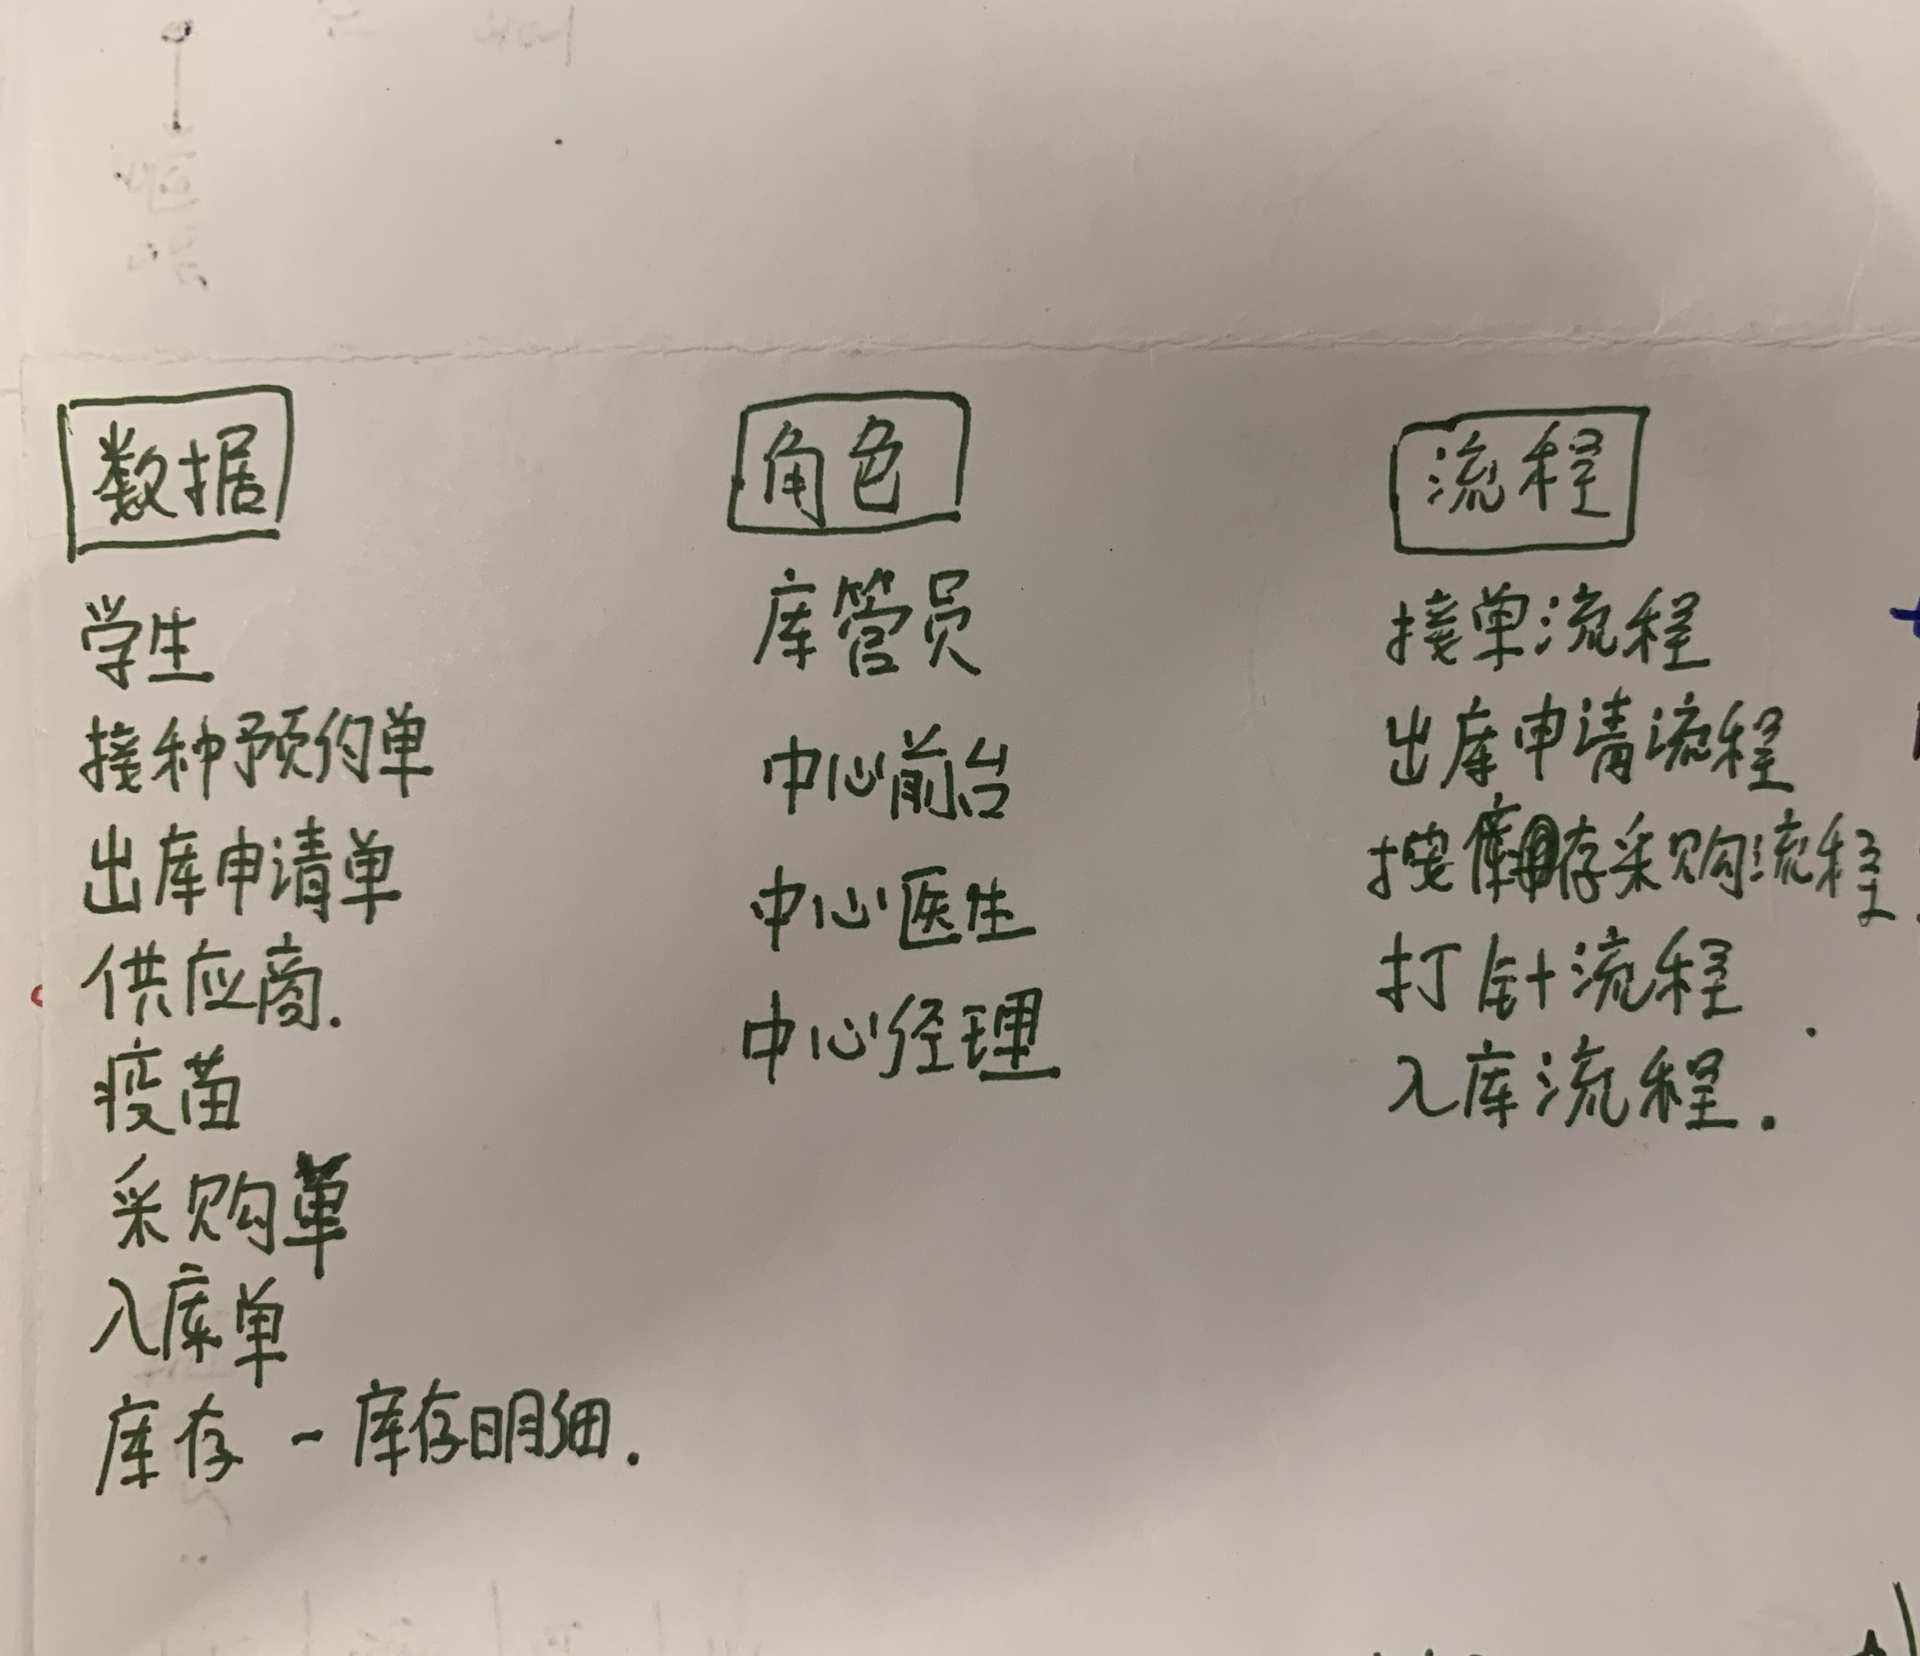 数据
学生
接种预约单
出库申请单
供应商.
疫苗
采购单
入库单
库存 - 库存明细.
角色
库管员
中心前台
中心医生
中心经理
流程
接单流程
出库申请流程
按库存采购流程.
打针流程
入库流程.